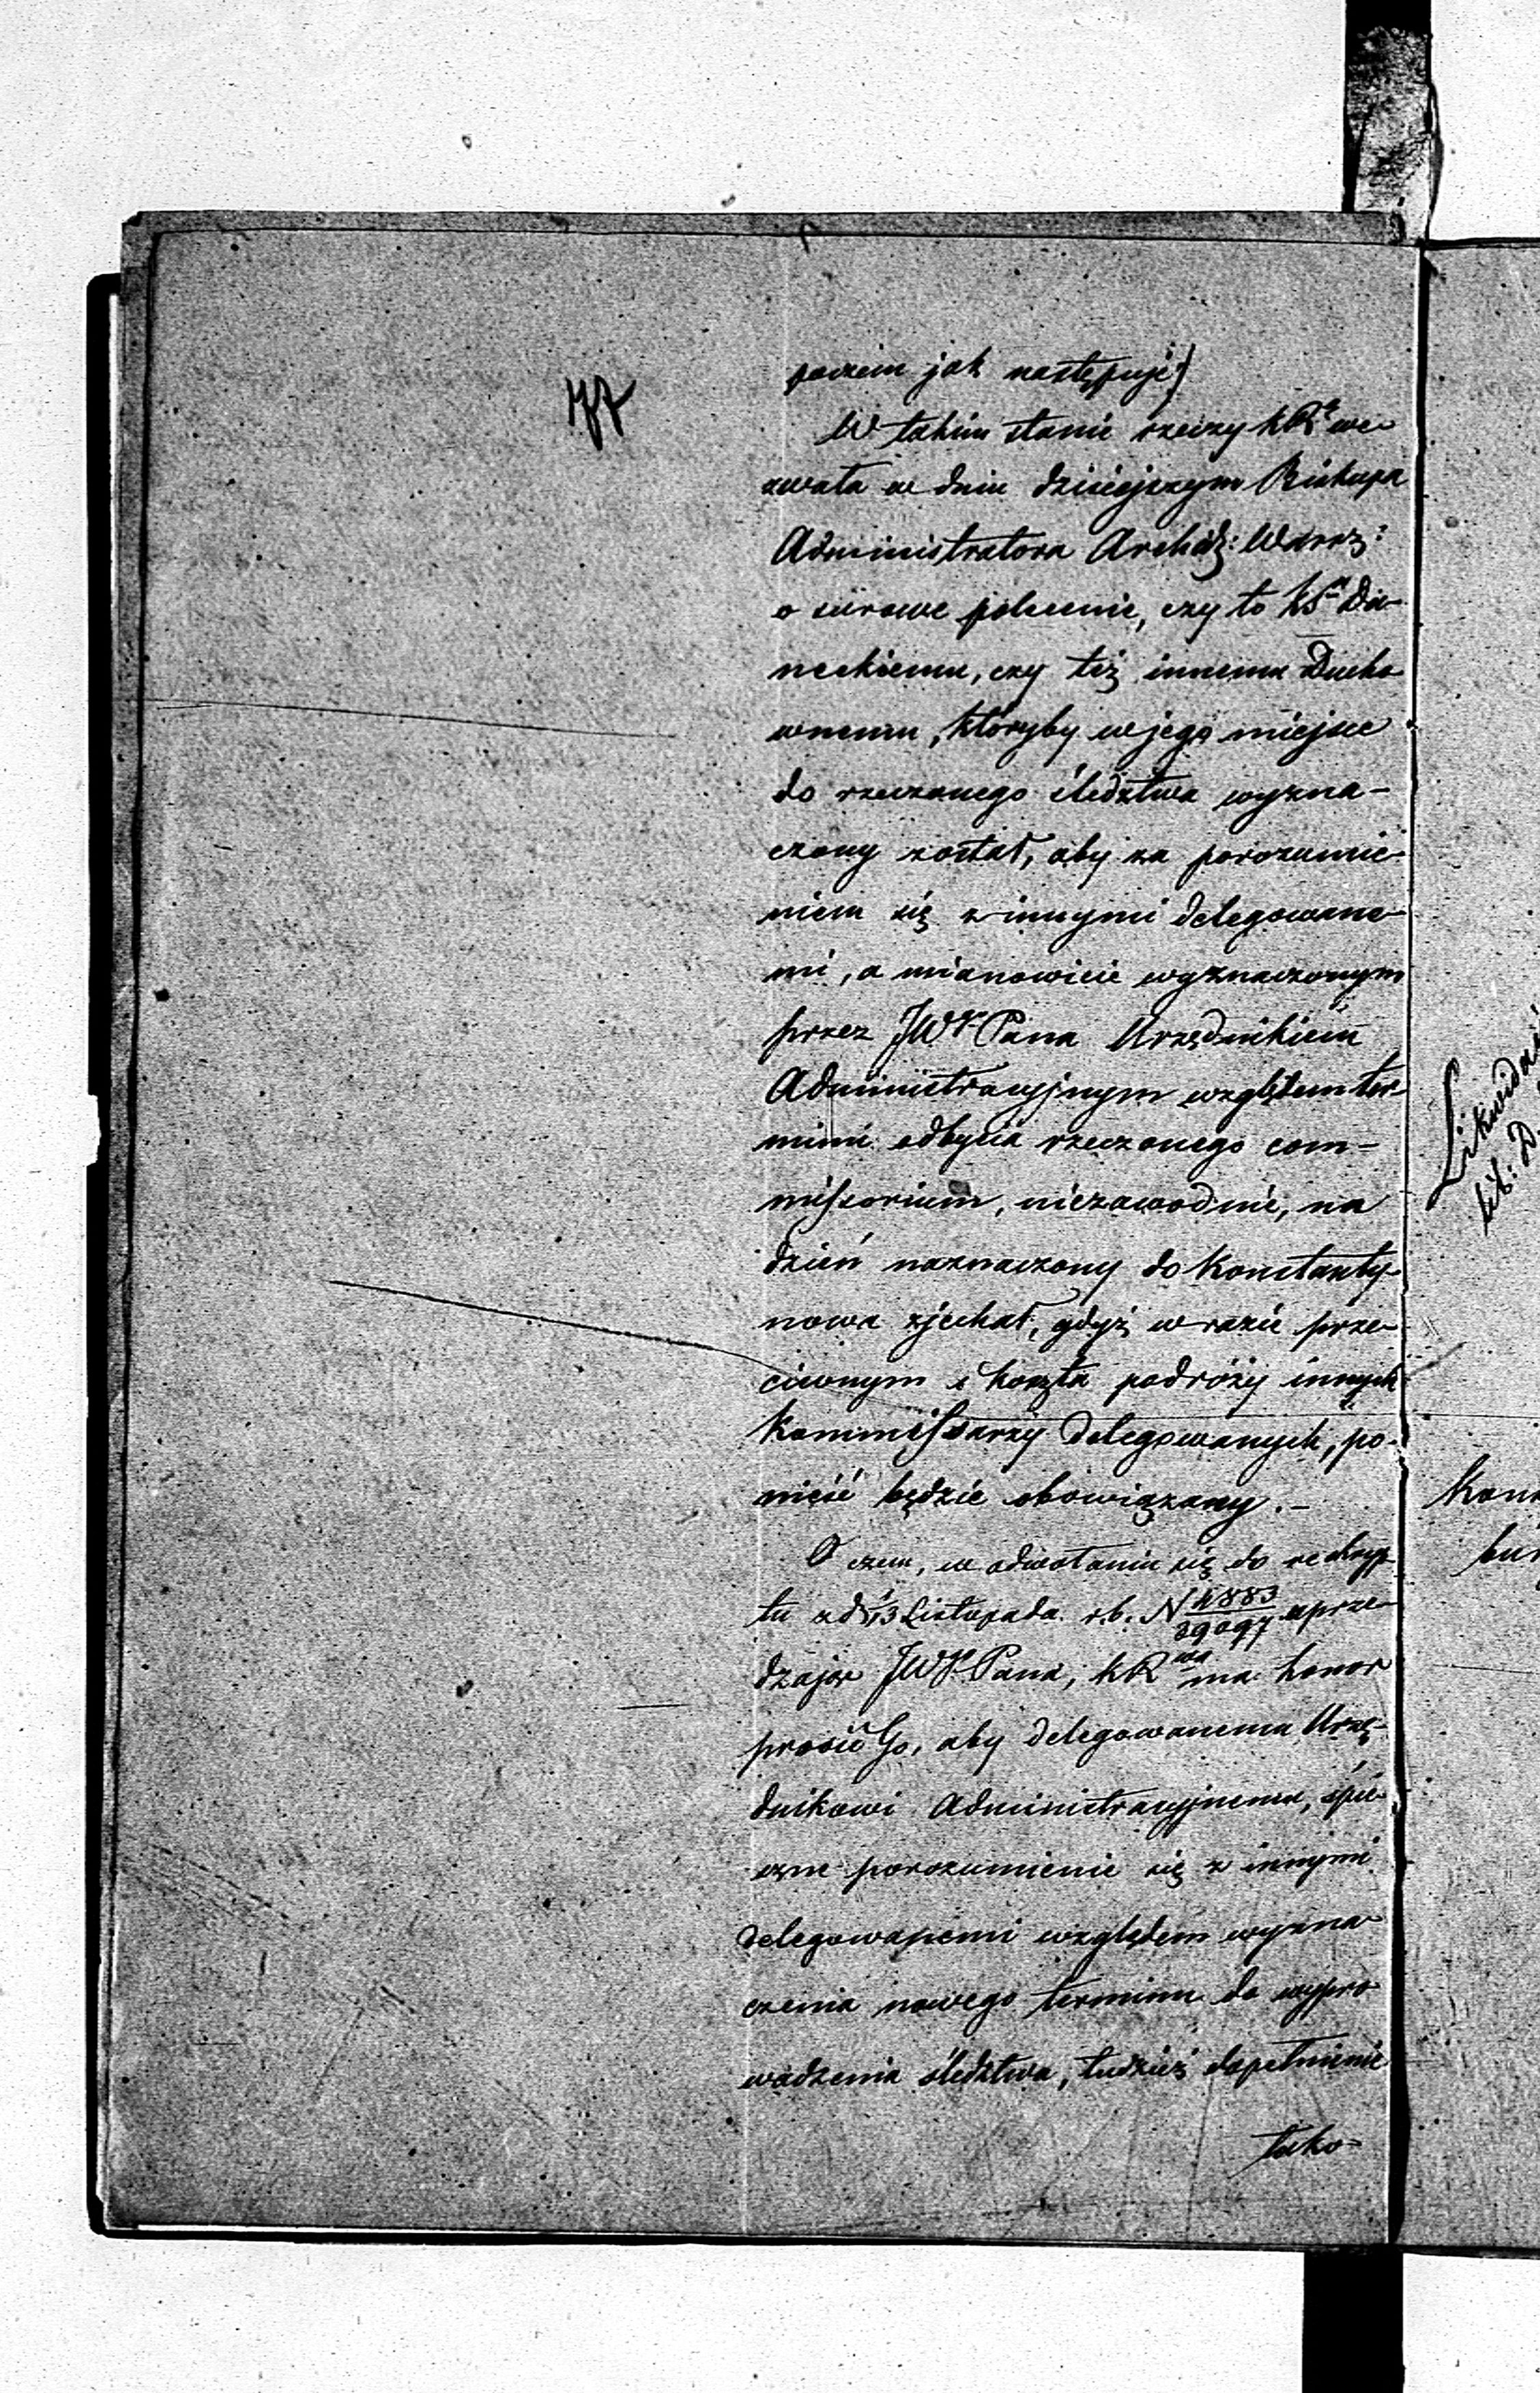 77
poczem jak następuje)
W takim stanie rzeczy KR we-
zwała w dniu dzisiejszym Biskupa
Administratora Archidj: Warsz:
o surowe polecenie, czy to Da-
neckiemu, czy też innemu Ducho-
wnemu, któryby w jego miejsce
do rzeczonego śledztwa wyzna-
czony został, aby za porozumie-
niem się z innymi delegowane-
mi, a mianowicie wyznaczonym
przez JWº Pana Urzędnikiem
Administracyjnym względem ter-
minu odbycia rzeczonego com-
missorium, niezawodnie, na
dzień naznaczony do Konstanty-
nowa zjechał, gdyż w razie prze-
ciwnym i koszta podróży innych
Kommissarzy Delegowanych, po-
nieść będzie obowiązany. -
O czem, w odwołaniu się do reskryp-
tu z d 1/13 Listopada r.b. N 4883/39097 uprze-
dzając JWº Pana, KRwa ma honor
prosić Go, aby delegowanemu Urzę-
dnikowi Administracyjnemu, śpie-
szne porozumienie się z innymi
delegowanemi względem wyzna-
czenia nowego terminu do wypro-
wadzenia śledztwa, tudzież dopełnienie
tako-
Likwida
lit: D.
Kom